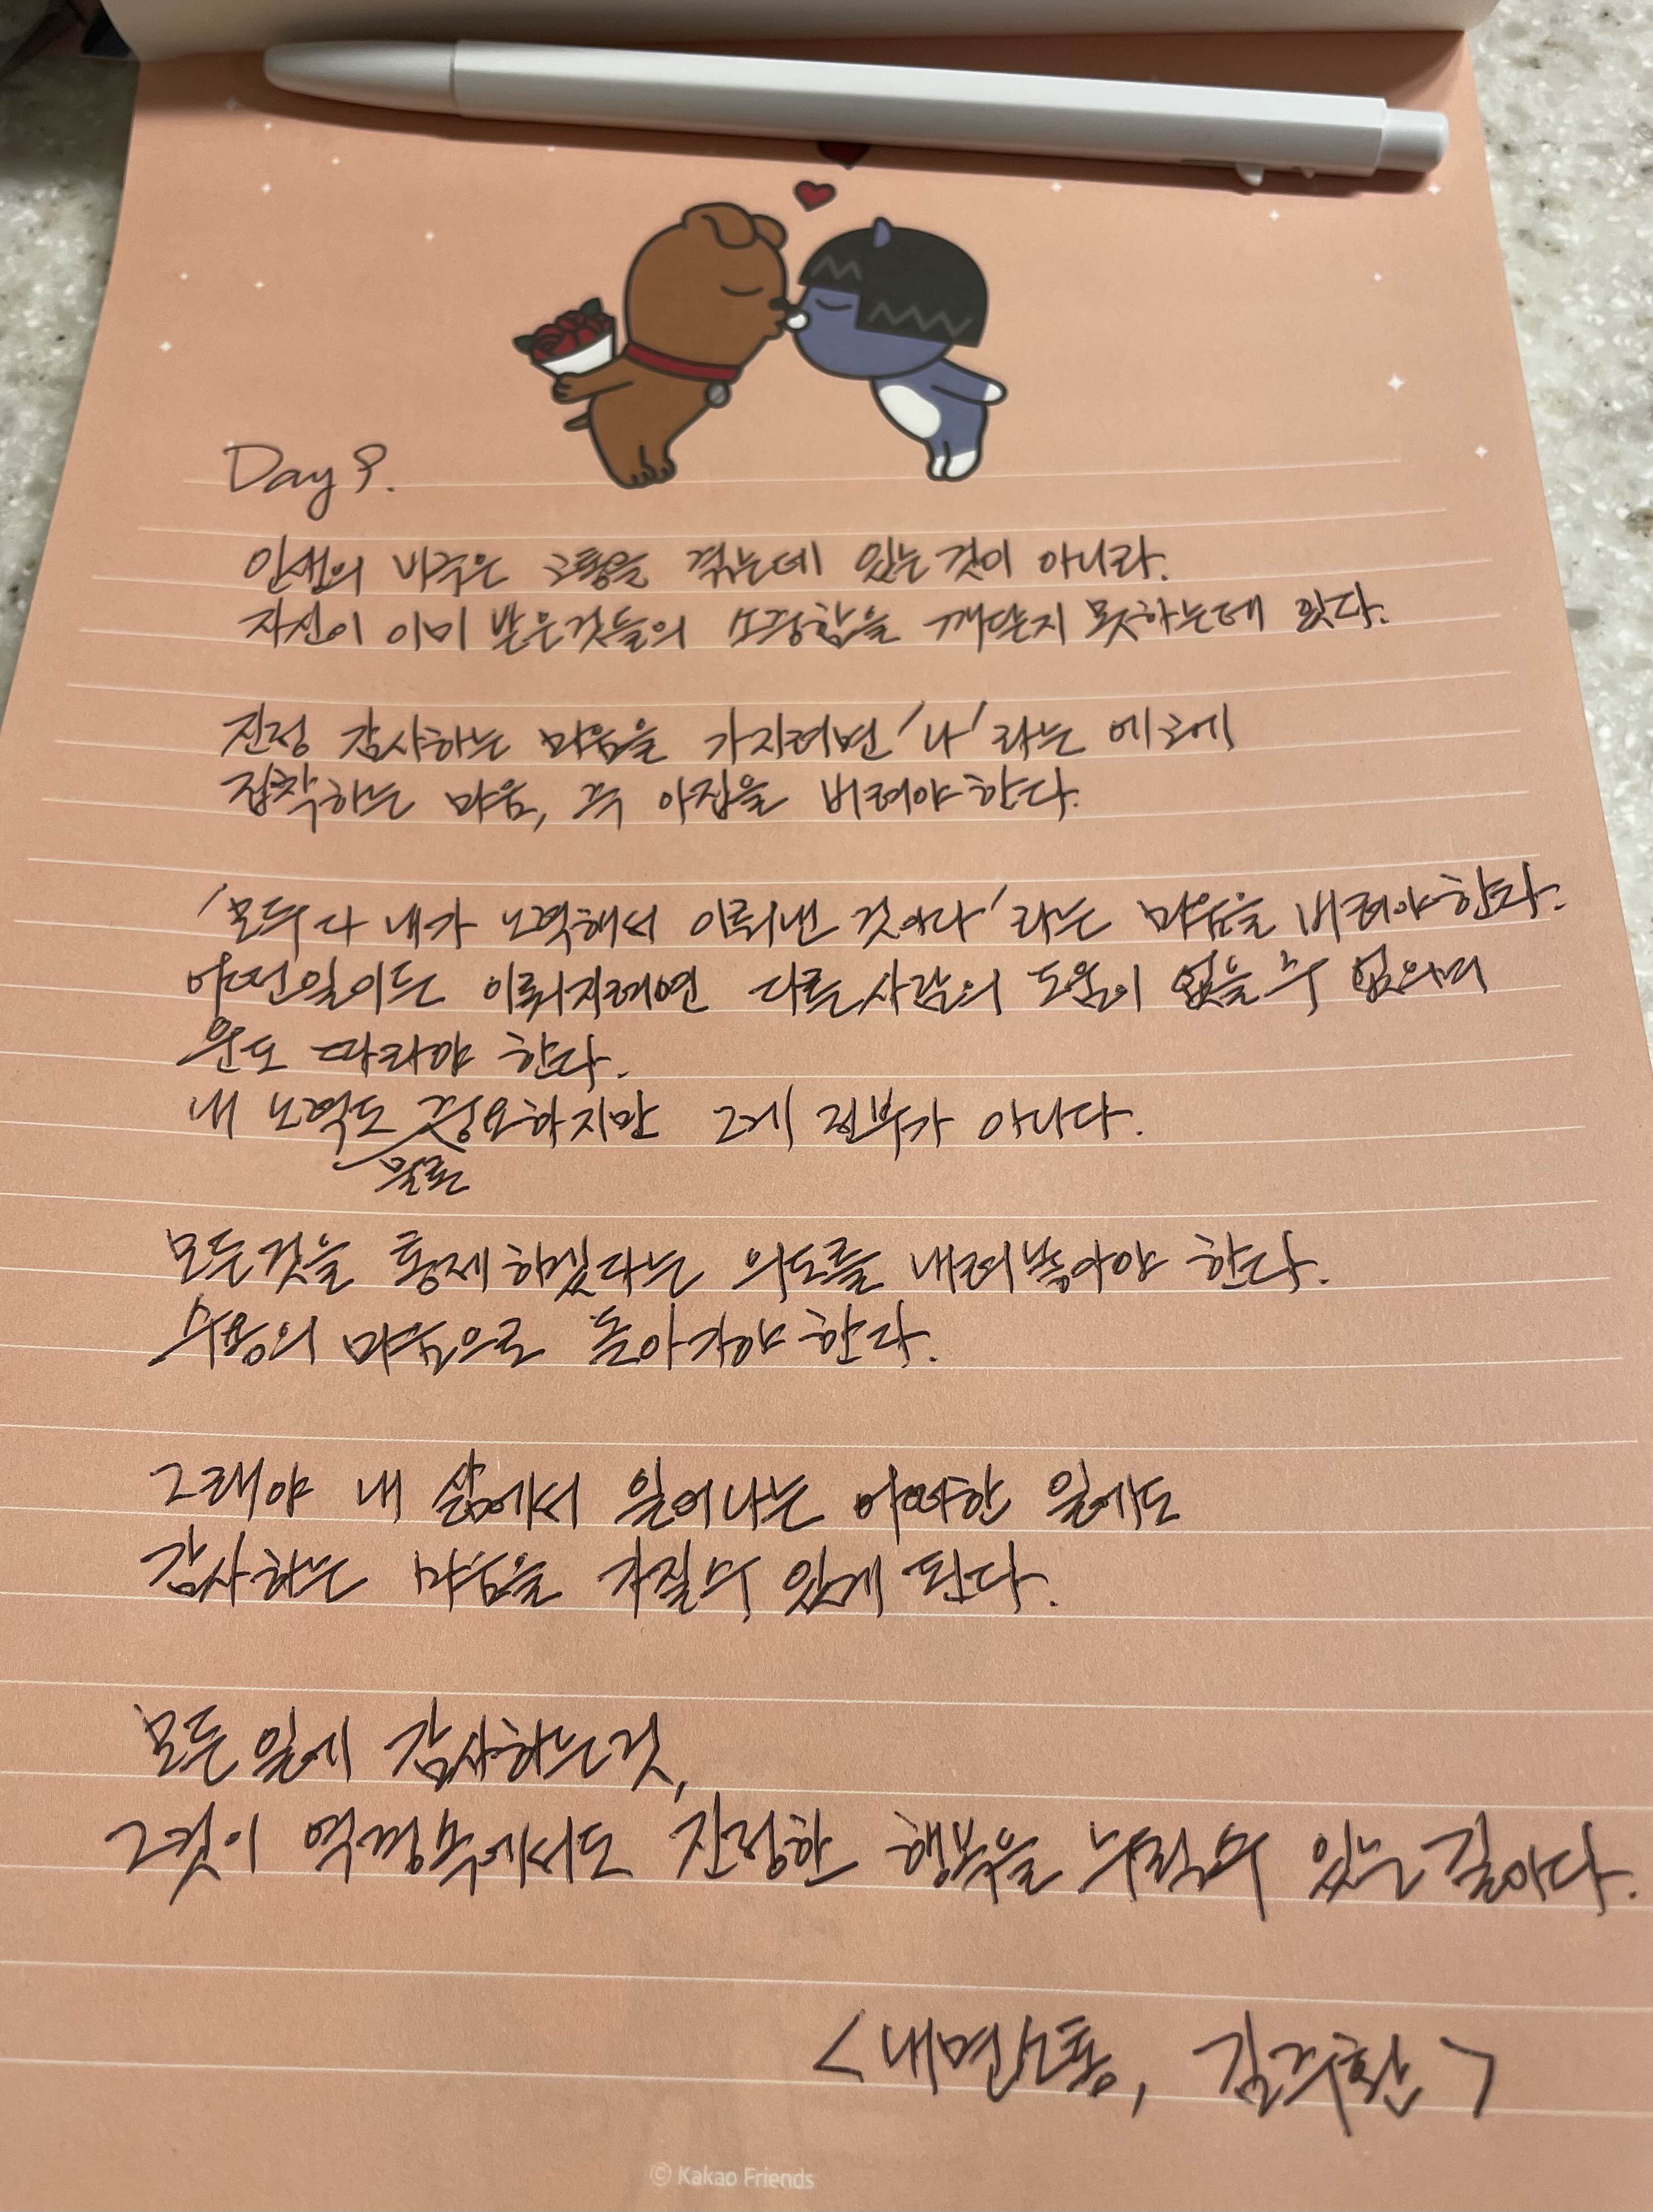 Day 9.
인생의 비극은 고통을 겪는데 있는것이 아니라.
자신이 이미 받은것들의 소중함을 깨닫지 못하는데 있다.
진정 감사하는 마음을 가지려면 '나'라는 에고에
집착하는 마음, 즉 아집을 버려야한다.
'모두 다 내가 노력해서 이뤄낸 것이다'라는 마음을 버려야한다.
어떤일이든 이뤄지려면 다른사람의 도움이 없을 수 없으며
운도 따라야 한다.
내 노력도 중요하지만 그게 전부가 아니다.
물론
모든것을 통제하겠다는 의도를 내려놓아야 한다.
수용의 마음으로 돌아가야 한다.
그래야 내 삶에서 일어나는 어떠한 일에도
감사하는 마음을 가질수 있게 된다.
모든 일에 감사하는것,
그것이 역경속에서도 진정한 행복을 누릴수 있는 길이다.
<내면소통, 김주환>
© Kakao Friends